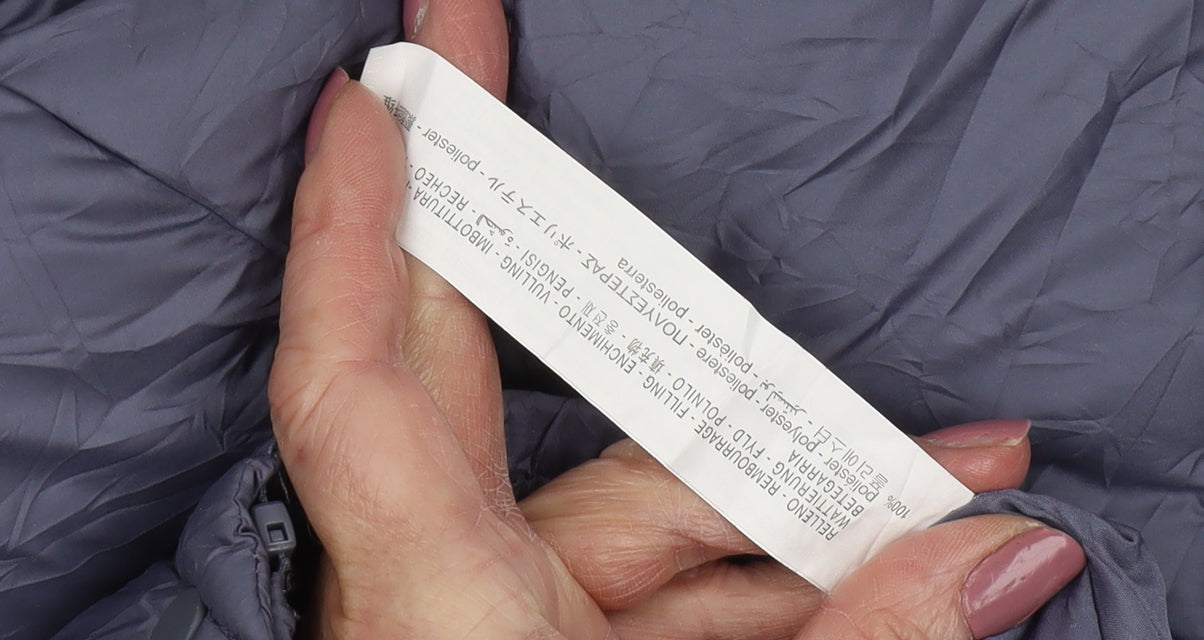 RELLENO - REMBOURRAGE - FILLING - ENCHIMENTO - VULLING - IMBOTTITURA
WATTIERUNG - FYLD - POLNILO - 填充物 - 충전재 - PENGISI - الحشوة - RECHEO -
BETEGARRIA
100% poliester - polyester - poliestere - ΠΟΛΥΕΣΤΕΡΑΣ - ポリエステル - poliester -
폴리에스터 - بوليستر - poliéster - poliesterra